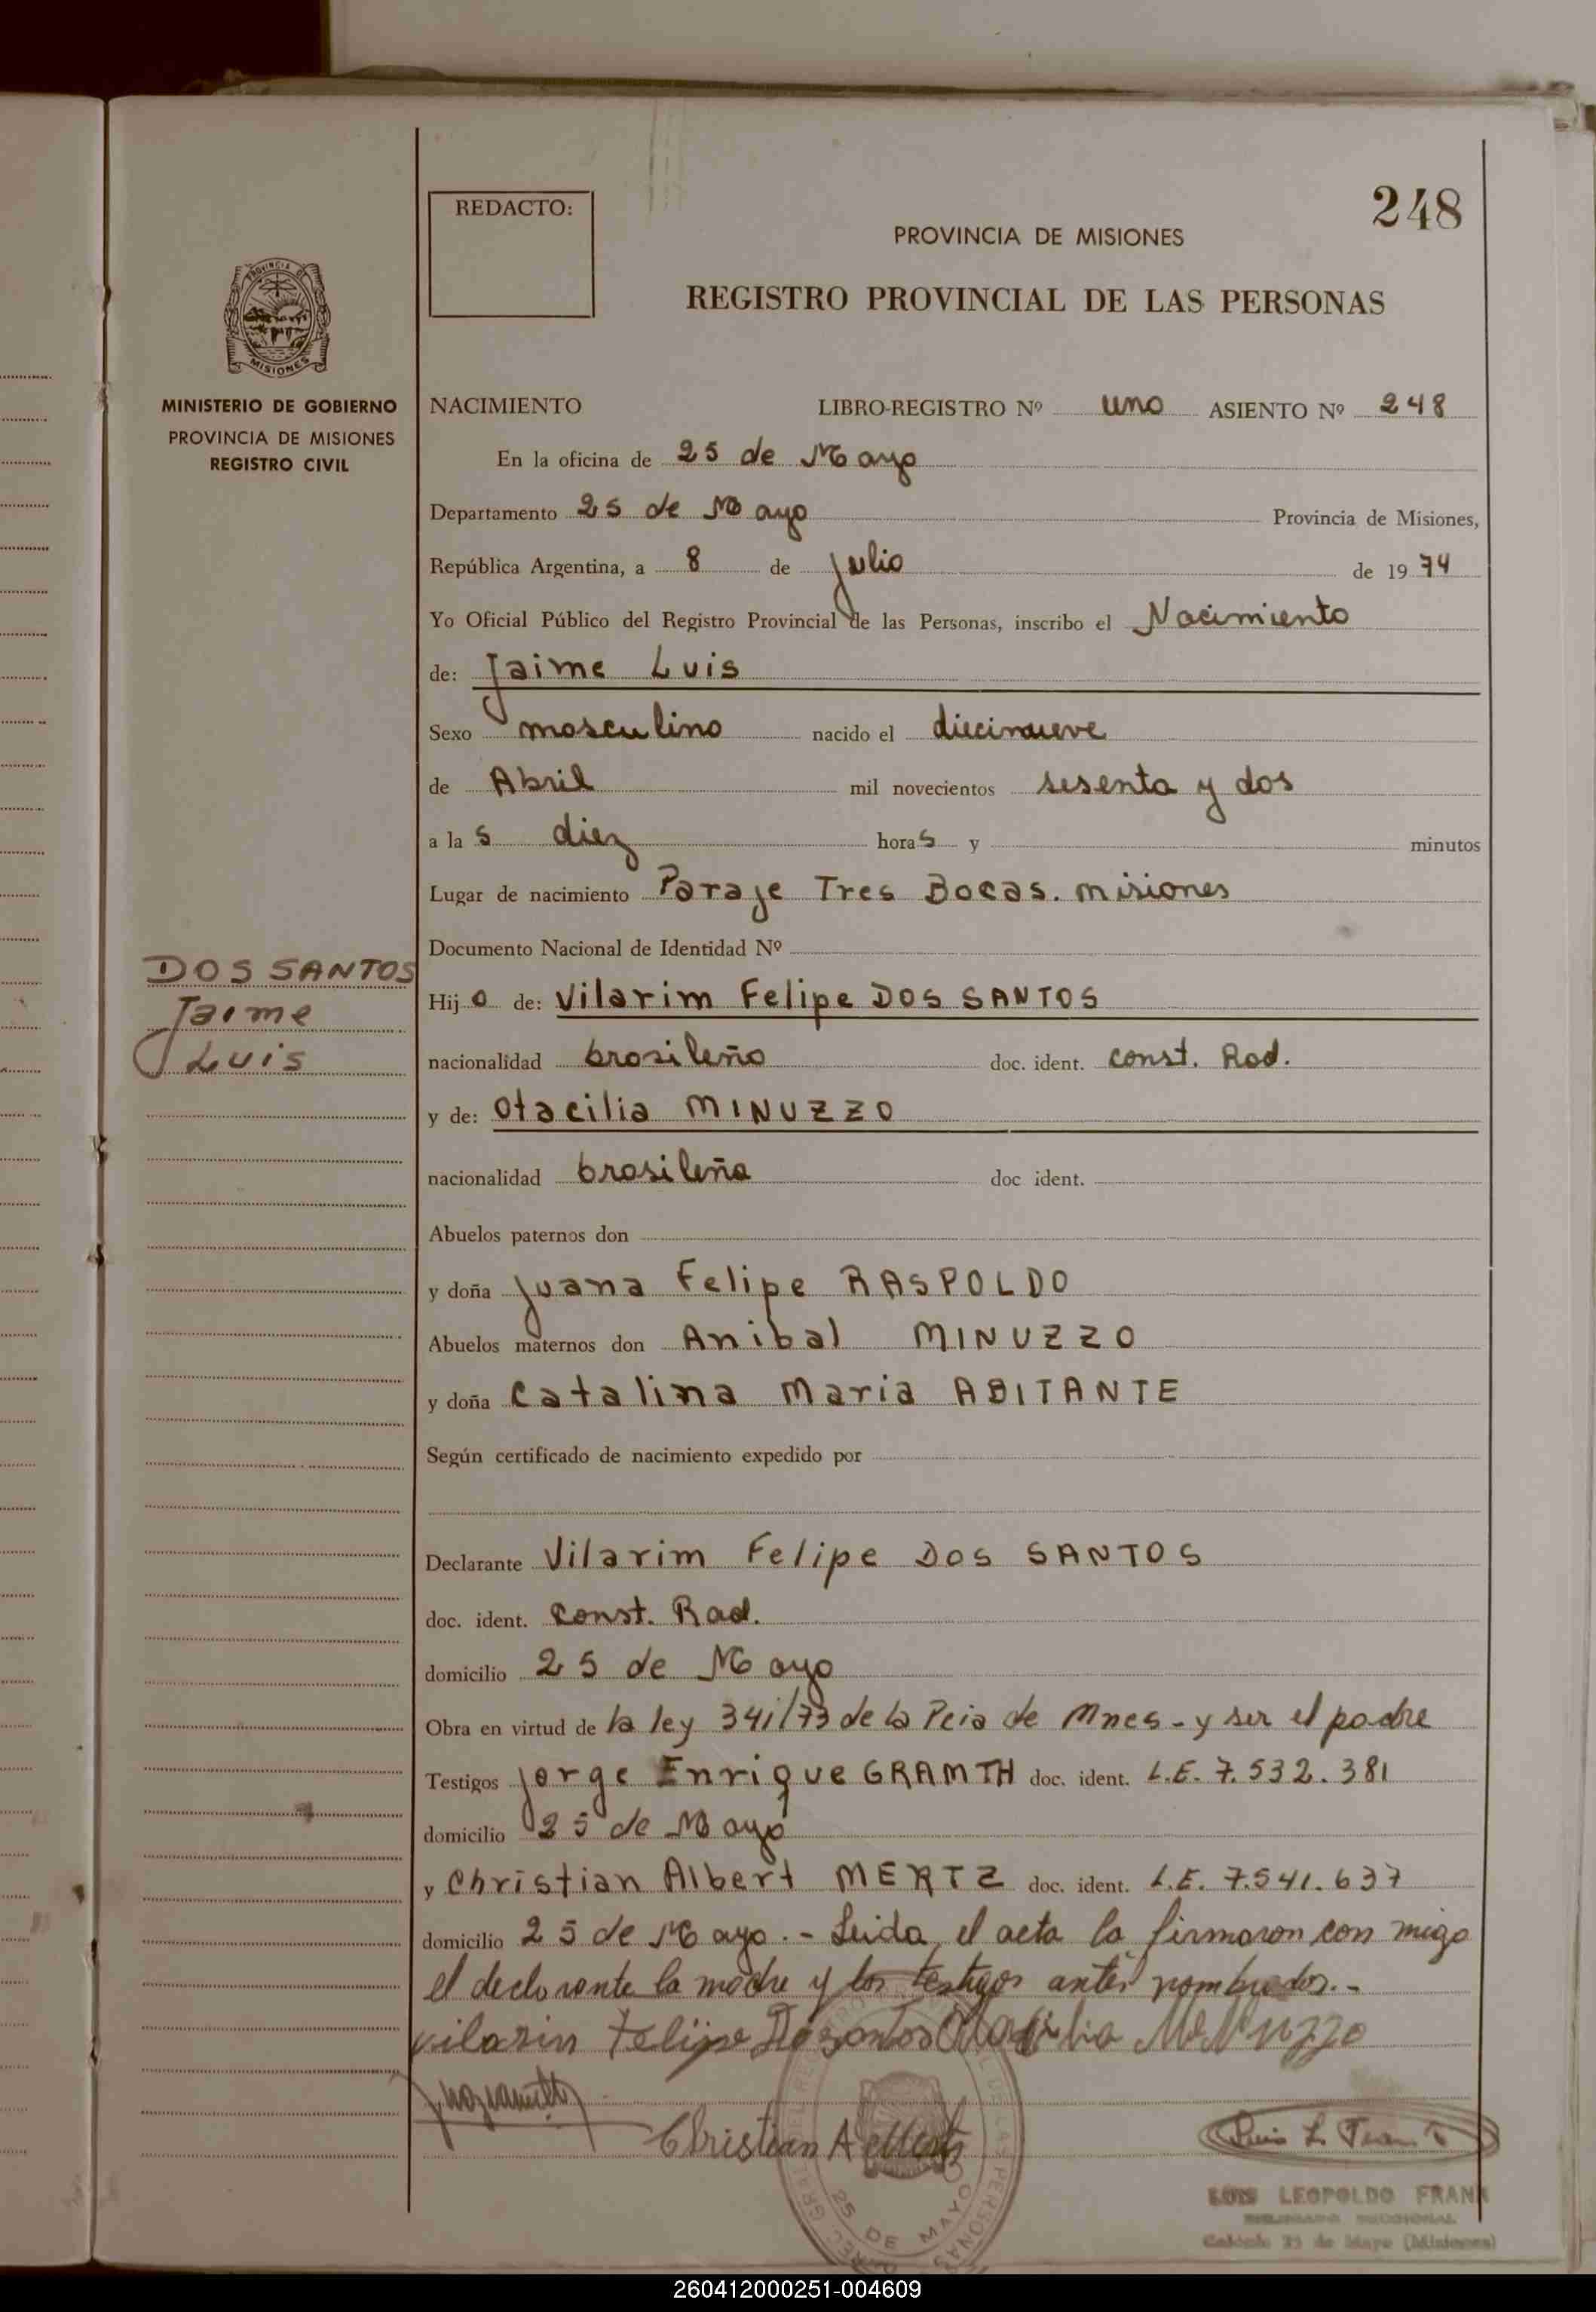 248
REDACTO:
PROVINCIA DE MISIONES
REGISTRO PROVINCIAL DE LAS PERSONAS
PROVINCIA DE
MISIONES
MINISTERIO DE GOBIERNO
PROVINCIA DE MISIONES
REGISTRO CIVIL
DOS SANTOS
Jaime
Luis
NACIMIENTO LIBRO-REGISTRO Nº uno ASIENTO Nº 248
En la oficina de 25 de Mayo
Departamento 25 de Mayo Provincia de Misiones,
República Argentina, a 8 de Julio de 1974
Yo Oficial Público del Registro Provincial de las Personas, inscribo el Nacimiento
de: Jaime Luis
Sexo masculino nacido el diecinueve
de Abril mil novecientos sesenta y dos
a las diez horas y minutos
Lugar de nacimiento Paraje Tres Bocas. misiones
Documento Nacional de Identidad Nº
Hijo de: Vilarim Felipe DOS SANTOS
nacionalidad brasileño doc. ident. const. Rad.
y de: Otacilia MINUZZO
nacionalidad brasileña doc ident.
Abuelos paternos don
y doña Juana Felipe RASPOLDO
Abuelos maternos don Anibal MINUZZO
y doña Catalina Maria ABITANTE
Según certificado de nacimiento expedido por
Declarante Vilarim Felipe DOS SANTOS
doc. ident. Const. Rad.
domicilio 25 de Mayo
Obra en virtud de la ley 341/73 de la Pcia de Mnes - y ser el padre
Testigos Jorge Enrique GRAMTH doc. ident. L.E. 7.532.381
domicilio 25 de Mayo
y Christian Albert MERTZ doc. ident. L.E. 7.541.637
domicilio 25 de Mayo. - Leida el acta la firmaron con migo
el declarante la madre y los testigos antes nombrados. -
Vilarin Felipe Dosantos Otacilia MeNuzzo
Christian A Mertz
Luis L. Frank
25 DE MAYO
LUIS LEOPOLDO FRANK
Colonia 25 de Mayo (Misiones)
260412000251-004609